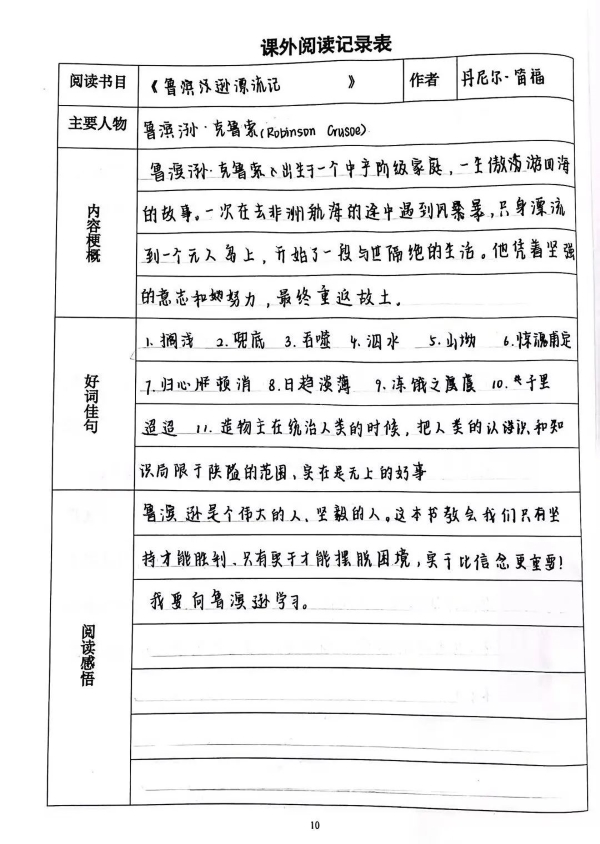 课外阅读记录表
阅读书目 《鲁滨汉逊漂流记 》 作者 丹尼尔·笛福
主要人物 鲁滨逊·克鲁索(Robinson Crusoe)
内容梗概
鲁滨逊·克鲁索出生于一个中产阶级家庭，一生傲游四海
的故事。一次在去非洲航海的途中遇到风暴，只身漂流
到一个无人岛上，开始了一段与世隔绝的生活。他凭着坚强
的意志和努力，最终重返故土。
好词佳句
1.搁浅 2.兜底 3.吞噬 4.泅水 5.山坳 6.惊魂甫定
7.归心顿消 8.日趋淡薄 9.冻饿之虞 10.千里
迢迢 11.造物主在统治人类的时候，把人类的认识和知
识局限于狭隘的范围，实在是无上的好事
阅读感悟
鲁滨逊是个伟大的人、坚毅的人。这本书教会我们只有坚
持才能胜利、只有实干才能摆脱困境，实干比信念更重要！
我要向鲁滨逊学习。
10